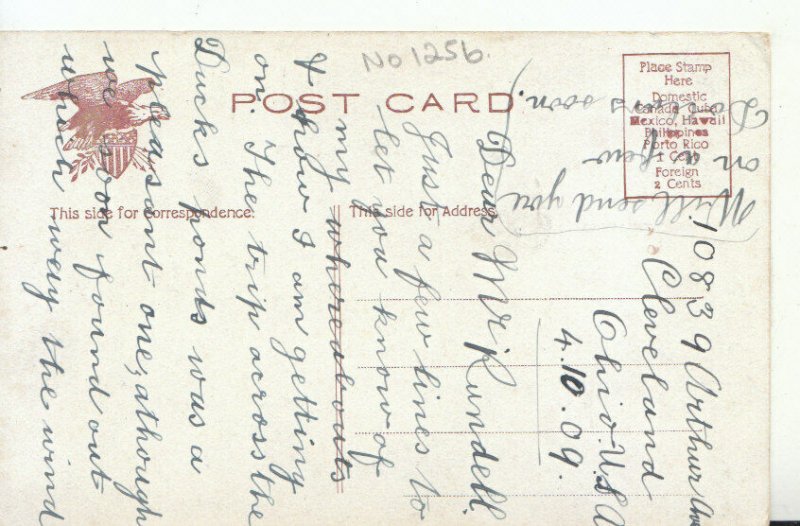 No 1256.
POST CARD.
Place Stamp
Here
Domestic
Canada Cuba
Mexico, Hawaii
Philippines
Porto Rico
1 Cent
Foreign
2 Cents
This side for Correspondence.
This side for Address.
10839 Arthur Ave
Cleveland
Ohio. U.S.A
4.10.09.
Dear Mr. Rundell.
Just a few lines to
let you know of
my whereabouts
& how I am getting
on. The trip across the
Ducks ponds was a
pleasant one, athough
we soon found out
which way the wind
Will send you
on a few
soon.)